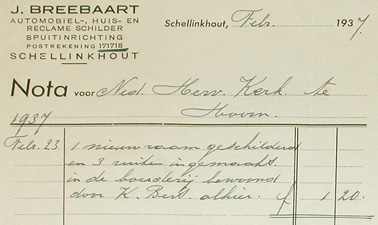 J. BREEBAART
AUTOMOBIEL-, HUIS- EN
RECLAME SCHILDER
SPUITINRICHTING
POSTREKENING 171718
SCHELLINKHOUT
Schellinkhout, Febr. 1937.
Nota voor Ned. Herv. Kerk te
Hoorn.
1937
Febr. 23 1 nieuw raam geschilderd
en 3 ruiten ingemaakt
in de bouderij bewoond
door K. Best alhier. f 1 20.